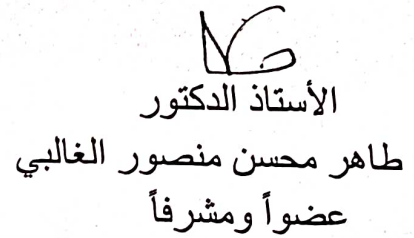 الأستاذ الدكتور
طاهر محسن منصور الغالبي
عضواً ومشرفاً